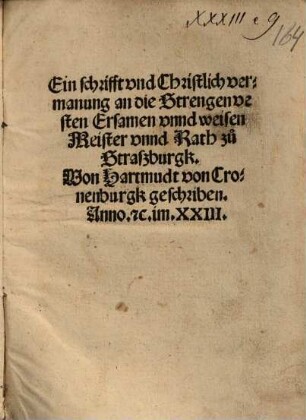 XXXIII 9
164
Ein schrifft vnd Christlich ver⸗
manung an die Strengen ve
sten Ersamen vnnd weisen
Meister vnnd Rath zů
Straßburgk.
Von Hartmudt von Cro⸗
nenburgk geschriben.
Anno. ꝛc. im. XXIII.